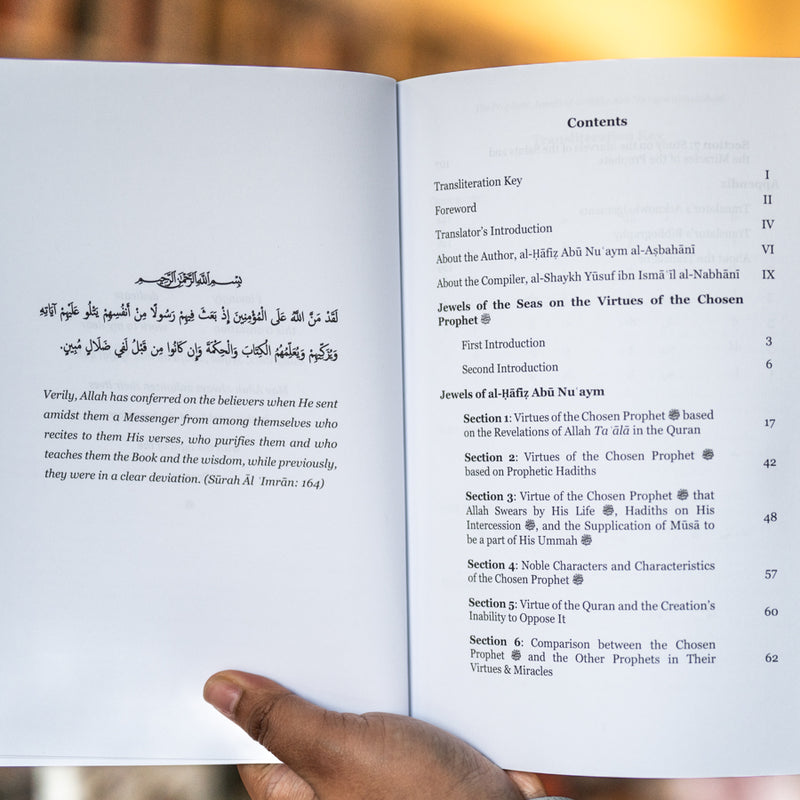 بِسْمِ اللَّهِ الرَّحْمَٰنِ الرَّحِيمِ
لَقَدْ مَنَّ اللَّهُ عَلَى الْمُؤْمِنِينَ إِذْ بَعَثَ فِيهِمْ رَسُولًا مِنْ أَنْفُسِهِمْ يَتْلُو عَلَيْهِمْ آيَاتِهِ
وَيُزَكِّيهِمْ وَيُعَلِّمُهُمُ الْكِتَابَ وَالْحِكْمَةَ وَإِن كَانُوا مِن قَبْلُ لَفِي ضَلَالٍ مُبِينٍ.
Verily, Allah has conferred on the believers when He sent
amidst them a Messenger from among themselves who
recites to them His verses, who purifies them and who
teaches them the Book and the wisdom, while previously,
they were in a clear deviation. (Sūrah Āl ʿImrān: 164)
Contents
Transliteration Key I
Foreword II
Translator's Introduction IV
About the Author, al-Ḥāfiẓ Abū Nuʿaym al-Aṣbahānī VI
About the Compiler, al-Shaykh Yūsuf ibn Ismāʿīl al-Nabhānī IX
Jewels of the Seas on the Virtues of the Chosen
Prophet ﷺ
First Introduction 3
Second Introduction 6
Jewels of al-Ḥāfiẓ Abū Nuʿaym
Section 1: Virtues of the Chosen Prophet ﷺ based
on the Revelations of Allah Taʿālā in the Quran 17
Section 2: Virtues of the Chosen Prophet ﷺ
based on Prophetic Hadiths 42
Section 3: Virtue of the Chosen Prophet ﷺ that
Allah Swears by His Life ﷺ, Hadiths on His
Intercession ﷺ, and the Supplication of Mūsā to 48
be a part of His Ummah ﷺ
Section 4: Noble Characters and Characteristics
of the Chosen Prophet ﷺ 57
Section 5: Virtue of the Quran and the Creation's
Inability to Oppose It 60
Section 6: Comparison between the Chosen
Prophet ﷺ and the Other Prophets in Their 62
Virtues & Miracles